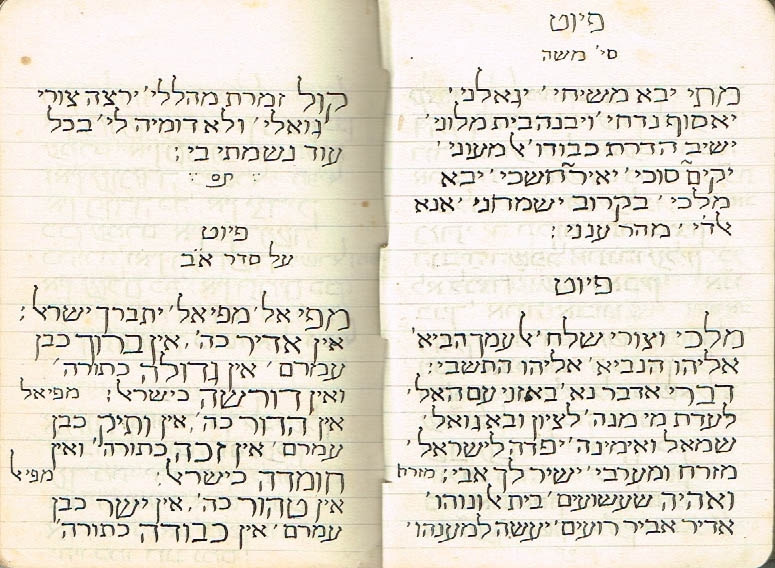 פיוט
סי׳ משה
מתי יבא משיחי ׳ יגאלני ׳
יאסוף נדחי ׳ ויבנה בית מלוני ׳
ישיב הדרת כבודו ׳ אל מעוני ׳
יקים סוכי ׳ יאיר חשכי ׳ יבא
מלכי ׳ בקרוב ישמחני ׳ אנא
אלהי ׳ מהר ענני ;
פיוט
מלכי וצורי שלח ׳ אל עמך הביא ׳
אליהו הנביא ׳ אליהו התשבי ;
דברי אדבר נא ׳ באזני עם האל ׳
לעדת מי מנה ׳ לציון ובא גואל ׳
שמאל ואימינה ׳ יפדה לישראל ׳
מזרח ומערבי ׳ ישיר לך אבי ; מזרח
ואהיה שעשועים ׳ בית אל ונוהו ׳
אדיר אביר רועים ׳ יעשה למענהו ׳
קול זמרת מהללי ׳ ירצה צורי
גואלי ׳ ולא דומיה לי ׳ בכל
עוד נשמתי בי ;
תם
פיוט
על סדר א״ב
מפי אל ׳ מפי אל ׳ יתברך ישראל ;
אין אדיר כה׳ , אין ברוך כבן
עמרם ׳ אין גדולה כתורה ׳
ואין דורשה כישראל ; מפי אל
אין הדור כה׳ , אין ותיק כבן
עמרם ׳ אין זכה כתורה ׳ ואין
חומדה כישראל ; מפי אל
אין טהור כה׳ , אין ישר כבן
עמרם ׳ אין כבודה כתורה ׳